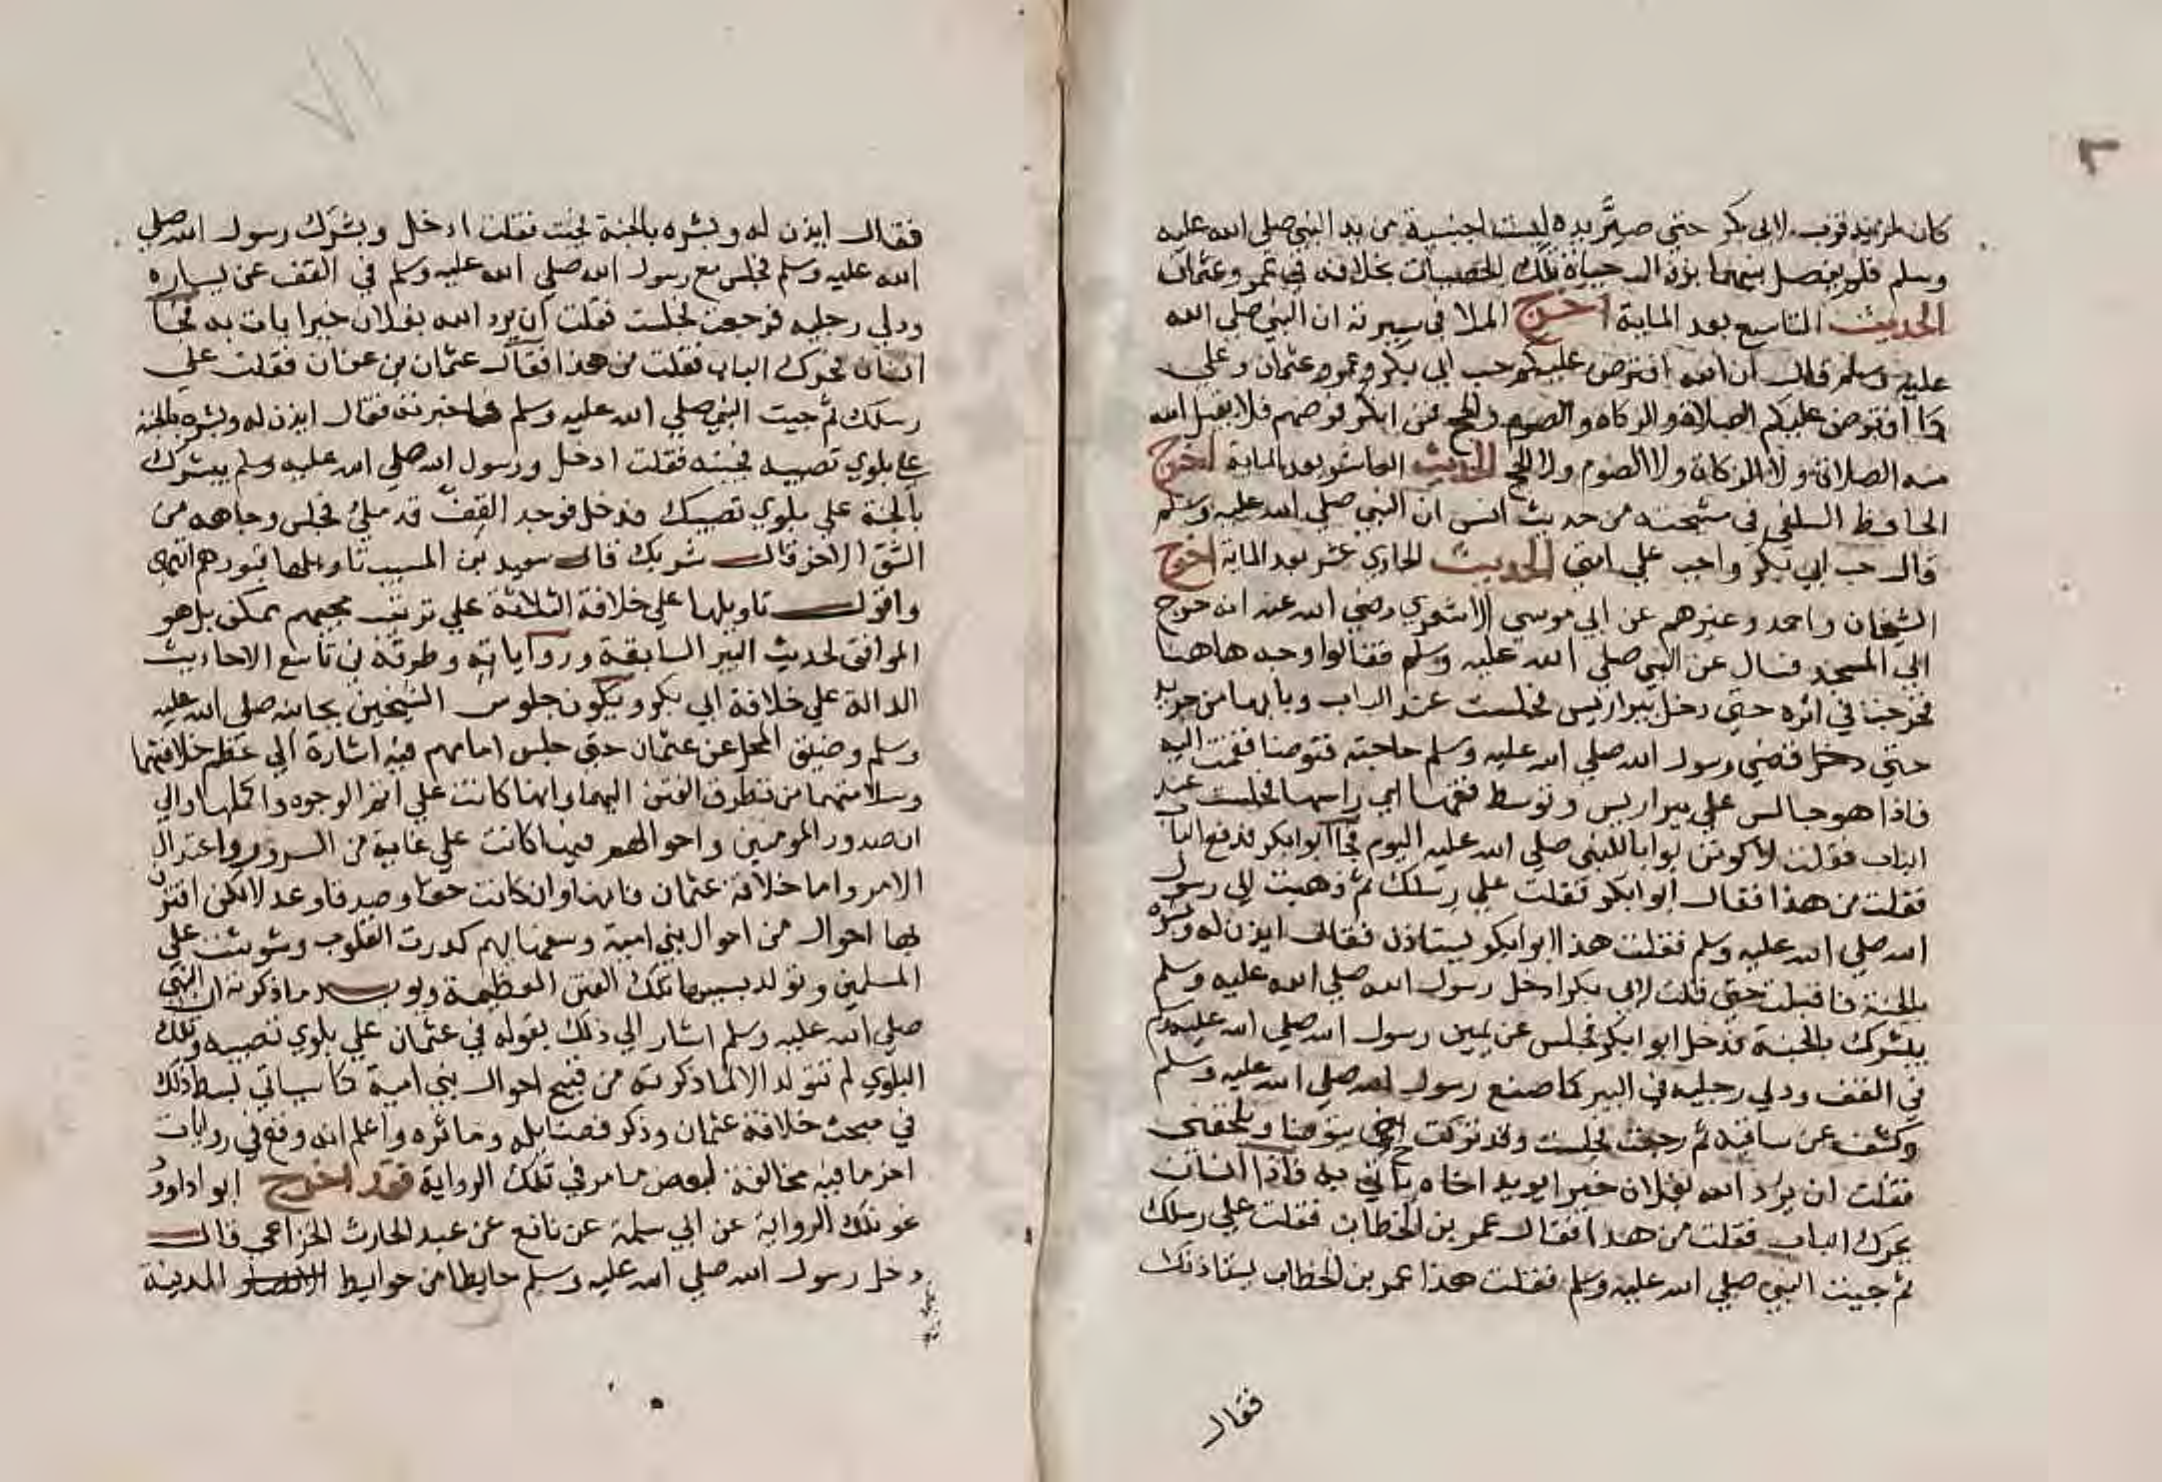 كان لمزيد قرب لابي بكر حتى صير يده ليست اجنبية من يد النبي صلي الله عليه
وسلم فلم يفصل بينهما بزوال حياة تلك الحصيات بخلافه في عمر وعثمان
الحديث التاسع بعد الماية اخرج الملا في سيرته ان النبي صلي الله
عليه وسلم قال ان الله افترض عليكم حب ابي بكر وعمر وعثمان وعلي
كما افترض عليكم الصلاة والزكاه والصوم والحج فمن انكر فرضهم فلا يقبل الله
منه الصلاة ولا الزكاة ولا الصوم ولا الحج الحديث العاشر بعد الماية اخرج
الحافظ السلفي في مشيخته من حديث انس ان النبي صلي الله عليه وسلم
قال حب ابي بكر واجب علي امتي الحديث الحادي عشر بعد الماية اخرج
الشيخان واحمد وغيرهم عن ابي موسي الاشعري رضي الله عنه انه خرج
الي المسجد فسال عن النبي صلي الله عليه وسلم فقالوا وجه هاهنا
فخرجنا في اثره حتي دخل بير اريس فجلست عند الباب وبابها من جريد
حتي دخل فقضي رسول الله صلي الله عليه وسلم حاجته فتوضا فقمت اليه
فاذا هو جالس علي بير اريس وتوسط قفها اي راسها فجلست عند
الباب فقلت لاكونن بوابا للنبي صلي الله عليه اليوم فجا ابوابكر فدفع الباب
فقلت من هذا فقال ابوابكر فقلت علي رسلك ثم ذهبت الي رسول
الله صلي الله عليه وسلم فقلت هذا ابوابكر يستاذن فقال ايذن له وبشره
بالجنة فاقبلت حتي قلت لابي بكر ادخل رسول الله صلي الله عليه وسلم
يبشرك بالجنة فدخل ابوابكر فجلس عن يمين رسول الله صلي الله عليه وسلم
في القف ودلي رجليه في البير كما صنع رسول الله صلي الله عليه وسلم
وكشف عن ساقيه ثم رجعت فجلست وقد تركت اخي يتوضا ويلحقني
فقلت ان يرد الله بفلان خيرا يريد اخاه ياتي به فاذا انسان
يحرك الباب فقلت من هذا فقال عمر بن الخطاب فقلت علي رسلك
ثم جيت النبي صلي الله عليه وسلم فقلت هذا عمر بن الخطاب يستاذنك
فقال
فقال ايذن له وبشره بالجنة فجيت فقلت ادخل وبشرك رسول الله صلي
الله عليه وسلم فجلس مع رسول الله صلي الله عليه وسلم في القف عن يساره
ودلي رجليه فرجعت فجلست فقلت ان يرد الله بفلان خيرا يات به فجا
انسان فحرك الباب فقلت من هذا فقال عثمان بن عفان فقلت علي
رسلك ثم جيت النبي صلي الله عليه وسلم فاخبرته فقال ايذن له وبشره بالجنة
علي بلوي تصيبه فجيته فقلت ادخل ورسول الله صلي الله عليه وسلم يبشرك
بالجنة علي بلوي تصيبك فدخل فوجد القف قد ملي فجلس وجاهه من
الشق الاخر قال شريك قال سعيد بن المسيب تاويلها قبورهم انتهي
واقول تاويلها علي خلافة الثلاثة علي ترتيب مجيهم ممكن بل هو
الموافق لحديث البير السابقة ورواياته وطرقه في تاسع الاحاديث
الدالة علي خلافة ابي بكر ويكون جلوس الشيخين بجانبه صلي الله عليه
وسلم وضيق المحل عن عثمان حتي جلس امامهم فيه اشارة الي عظم خلافتهما
وسلامتهما من تطرق الفتن اليهما وانها كانت علي اتم الوجوه واكملها والي
ان صدور المومنين واحوالهم فيها كانت علي غاية من السرور واعتدال
الامر واما خلافة عثمان فانها وان كانت حقا وصدقا وعدلا لكن اقترن
بها احوال من احوال بني امية وسفهايهم كدرت القلوب وشوشت علي
المسلمين وتولد بسببها تلك الفتن العظيمة ويويد ما ذكرته ان النبي
صلي الله عليه وسلم اشار الي ذلك بقوله في عثمان علي بلوي تصيبه وتلك
البلوي لم تتولد الا لما ذكرته من قبيح احوال بني امية كما سياتي بسط ذلك
في مبحث خلافة عثمان وذكر فضايله وماثره واعلم انه وقع في روايات
اخر ما فيه مخالفة لبعض ما مر في تلك الرواية فقد اخرج ابو اداود
نحو تلك الرواية عن ابي سلمة عن نافع عن عبد الحارث الخزاعي قال
دخل رسول الله صلي الله عليه وسلم حايطا من حوايط المدينة